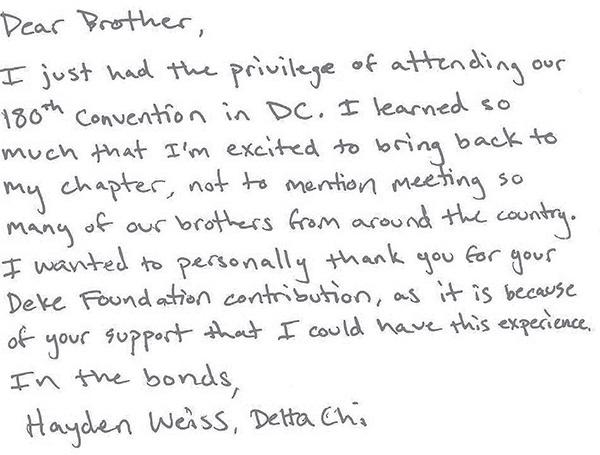 Dear Brother,
I just had the privilege of attending our
180th Convention in DC. I learned so
much that I'm excited to bring back to
my chapter, not to mention meeting so
many of our brothers from around the country.
I wanted to personally thank you for your
Deke Foundation contribution, as it is because
of your support that I could have this experience.
In the bonds,
Hayden Weiss, Delta Chi